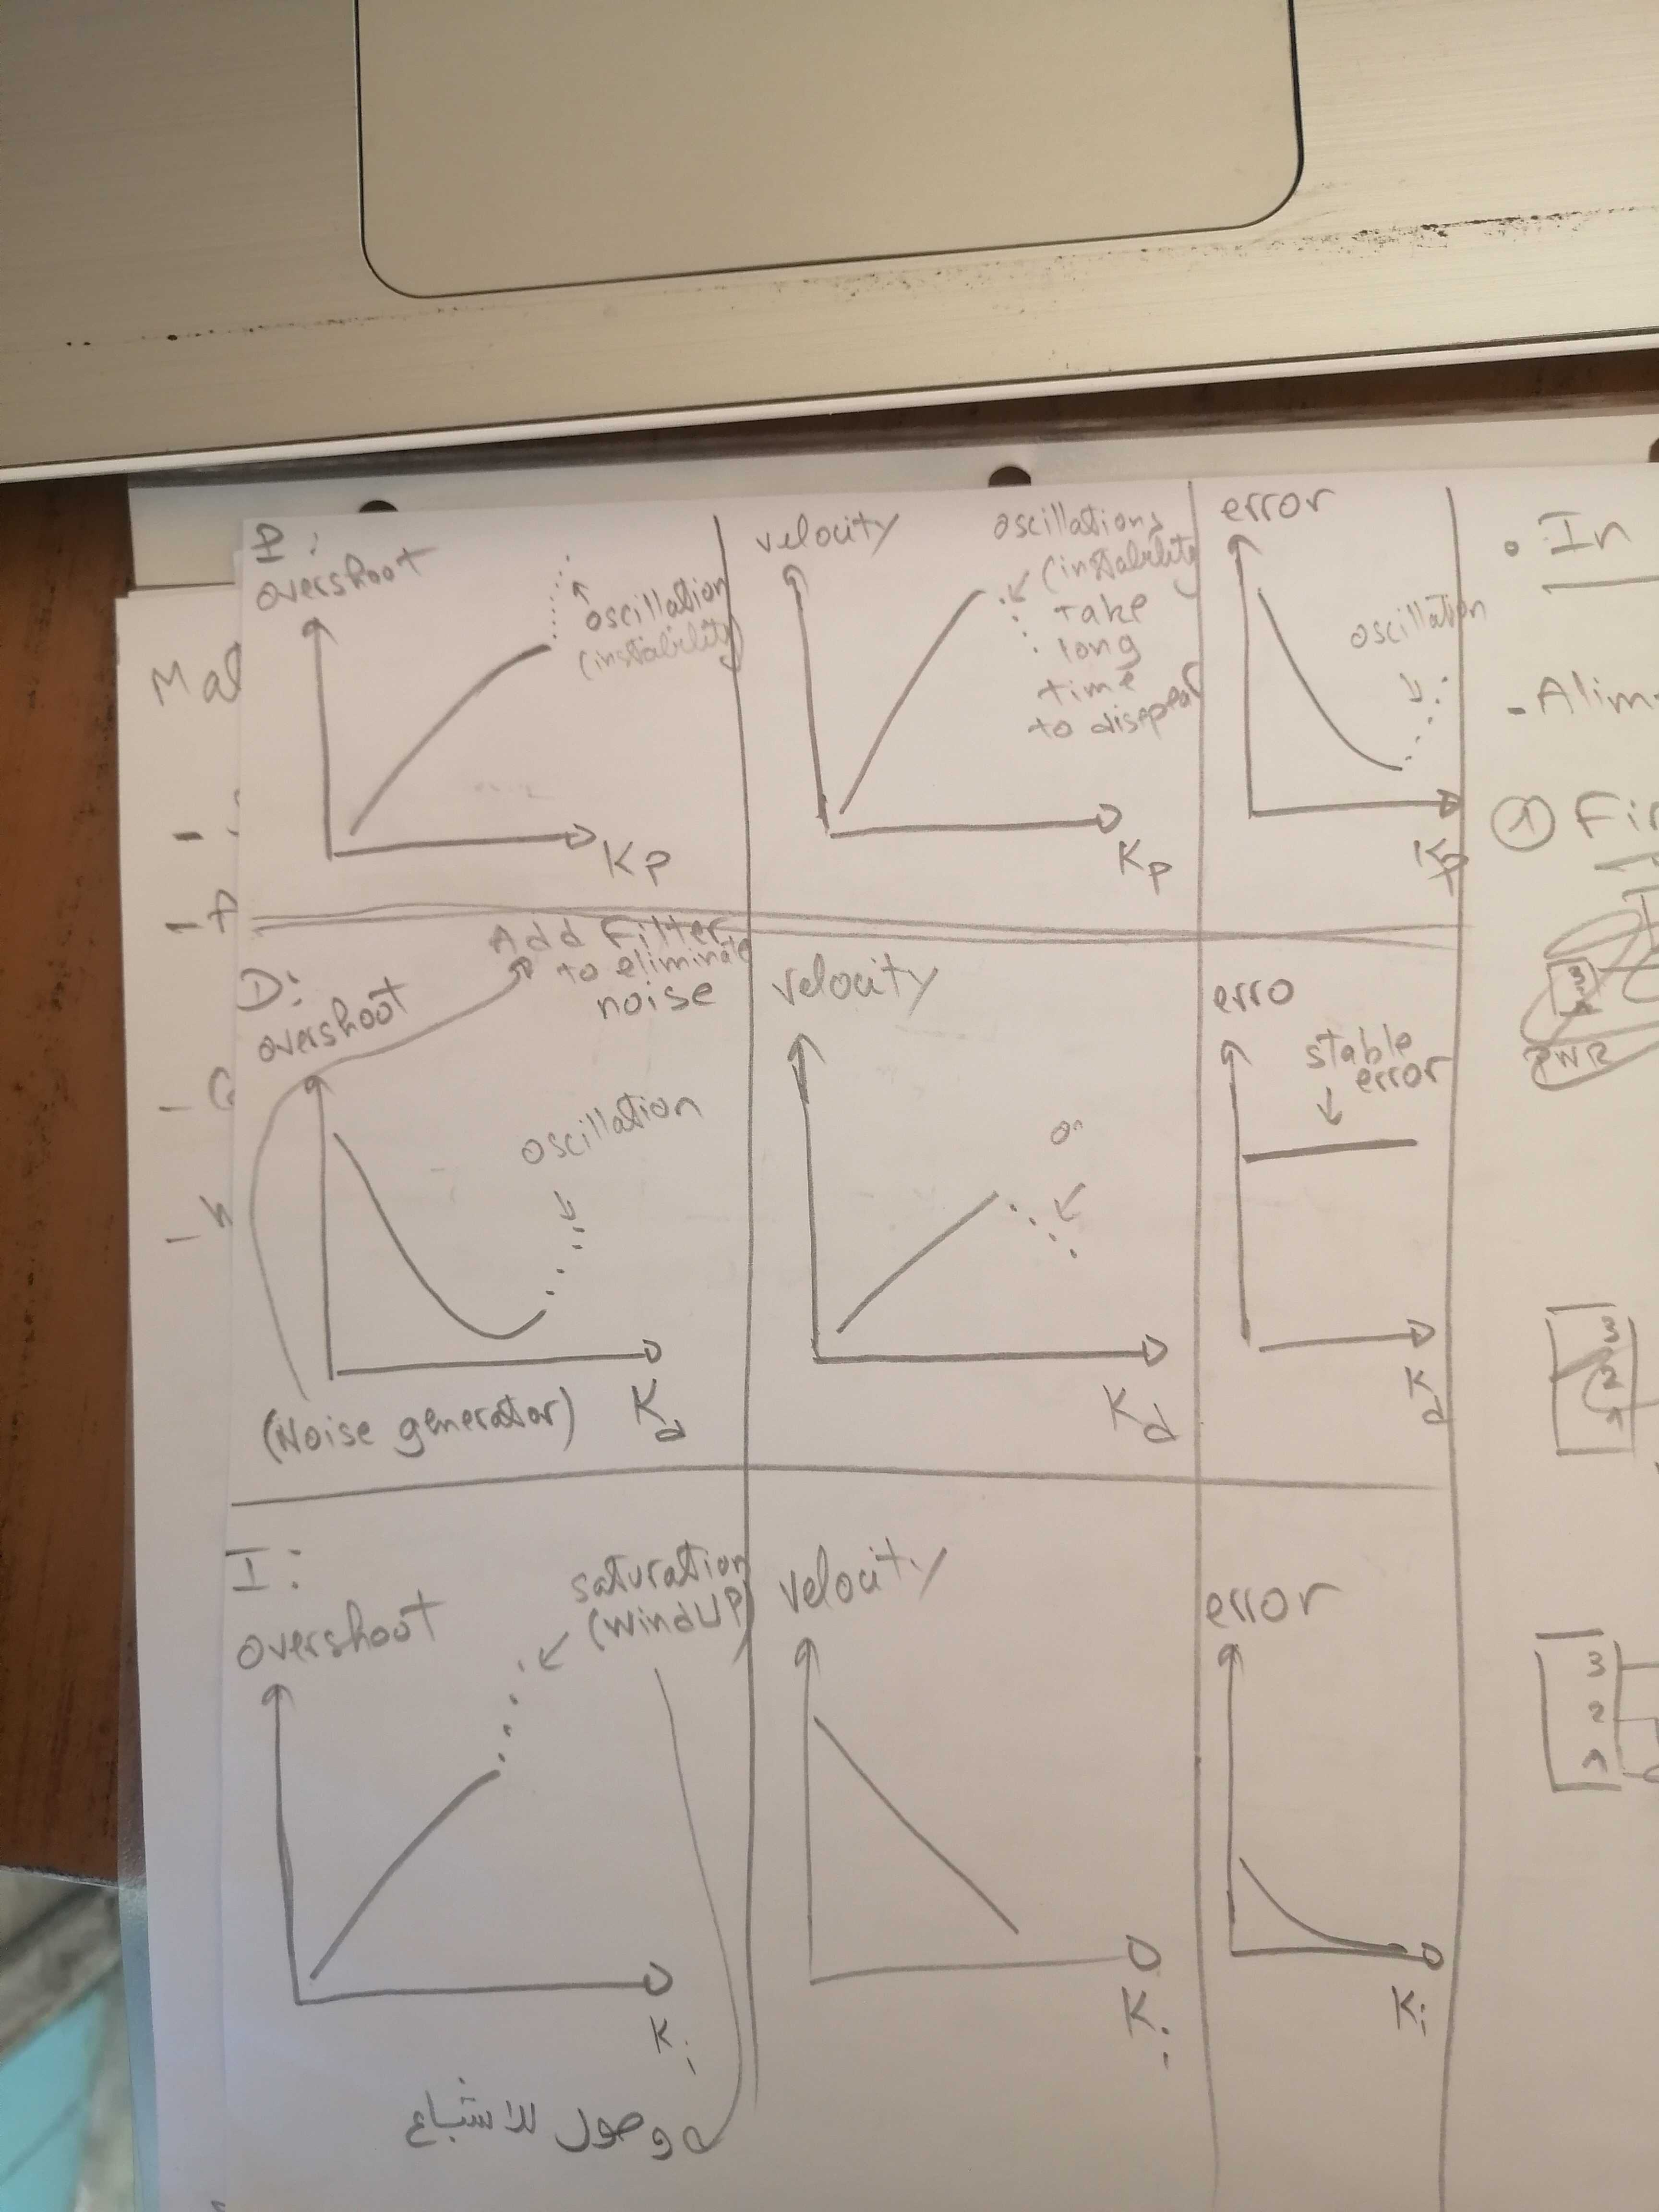 P:
overshoot
oscillation
(instability)
Kp
velocity
oscillations
(instability
take
long
time
to disepear
Kp
error
oscillation
Kp
D:
overshoot
Add Filter
to eliminate
noise
oscillation
(Noise generator)
Kd
velocity
Kd
erro
stable
error
Kd
I:
overshoot
saturation
(WindUP)
Ki
وصول للاشباع
velocity
Ki
error
Ki
• In
- Alim
① Fir
PWR
3
2
1
3
2
1
Mat